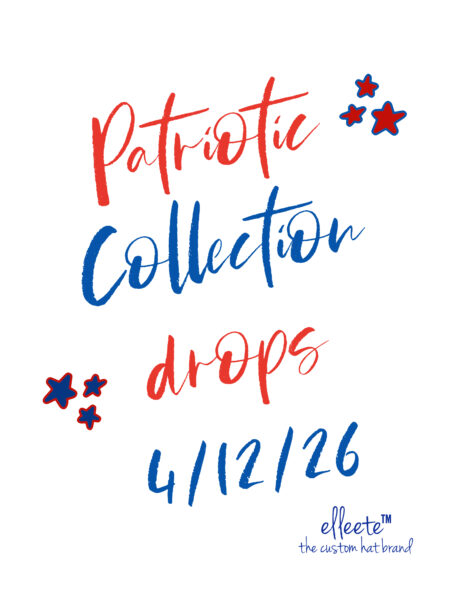 Patriotic
Collection
drops
4/12/26
elleete™
the custom hat brand